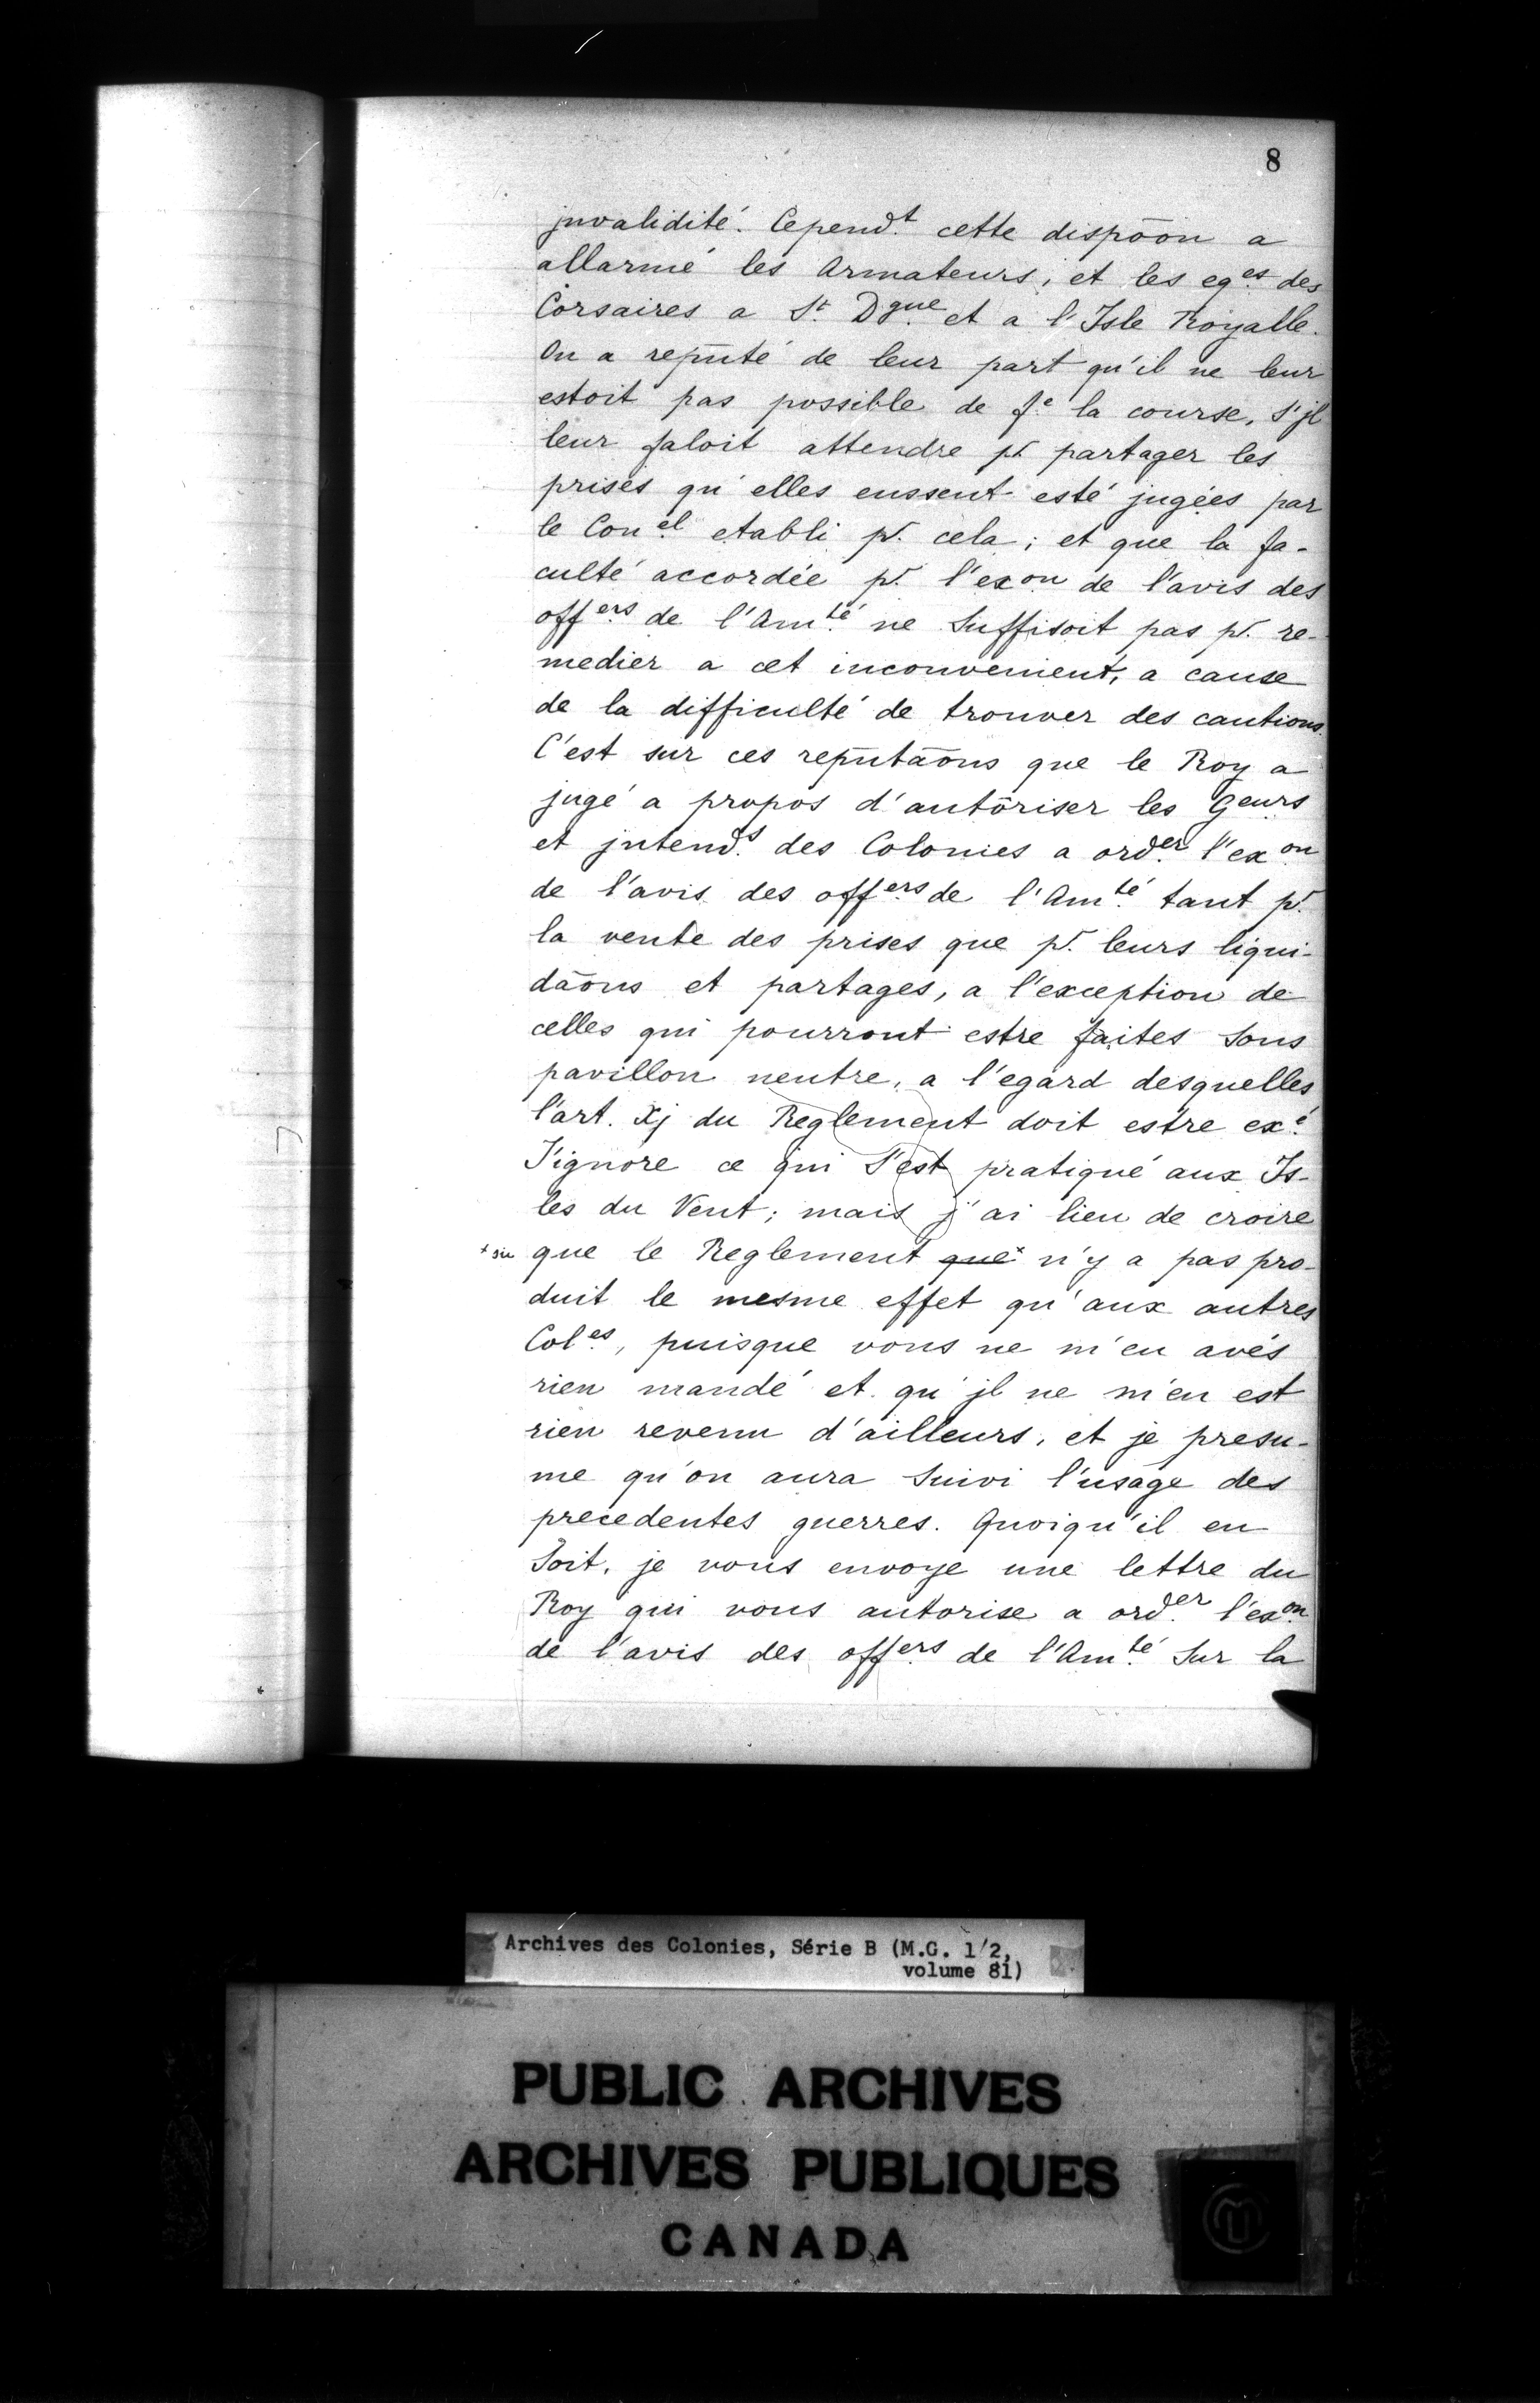 8
jnvalidité. Cepend.t cette dispõon a
allarmé les Armateurs, et les eq.es des
Corsaires a S.t D.gue et a l'Isle Royalle.
On a rep̃nté de leur part qu'il ne leur
estoit pas possible de f.e la course, s'jl
leur faloit attendre p.r partager les
prises qu'elles eussent esté jugées par
le Con.el etabli p.r cela; et que la fa-
culté accordée p.r l'ex.on de l'avis des
off.ers de l'Am.té ne Suffisoit pas p.r re-
medier a cet inconvenient, a cause
de la difficulté de trouver des cautions.
C'est sur ces rep̃ntãons que le Roy a
jugé a propos d'autoriser les G.eurs
et jntend.s des Colonies a ord.er l'ex.on
de l'avis des off.ers de l'Am.té tant p.r
la vente des prises que p.r leurs liqui-
dãons et partages, a l'exception de
celles qui pourront estre faites Sous
pavillon neutre, a l'egard desquelles
l'art. Xj du Reglement doit estre ex.é
J'ignore ce qui S'est pratiqué aux Is-
les du Vent; mais j'ai lieu de croire
que le Reglement que n'y a pas pro-
duit le mesme effet qu'aux autres
Col.es, puisque vous ne m'en avés
rien mandé et qu'jl ne m'en est
rien revenu d'ailleurs, et je presu-
me qu'on aura Suivi l'usage des
precedentes guerres. Quoiqu'il en
Soit, je vous envoye une lettre du
Roy qui vous autorise a ord.er l'ex.on
de l'avis des off.ers de l'Am.té Sur la
Archives des Colonies, Série B (M.G. 1/2,
volume 81)
PUBLIC ARCHIVES
ARCHIVES PUBLIQUES
CANADA